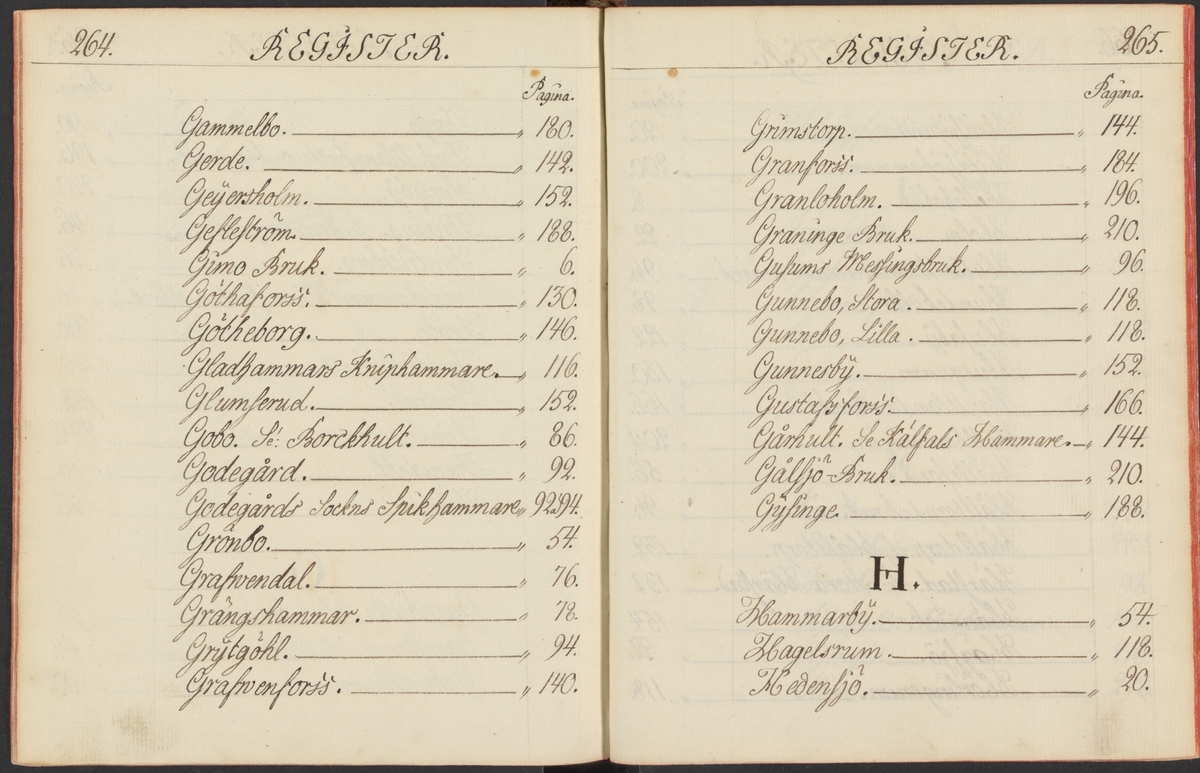 264. REGISTER.
Pagina.
Gammelbo. „ 180.
Gerde. „ 142.
Geÿersholm. „ 152.
Gefleström. „ 188.
Gimo Bruk. „ 6.
Göthaforss. „ 130.
Götheborg. „ 146.
Gladhammars Kniphammare. „ 116.
Glumserud. „ 152.
Gobo. Se: Borckhult. „ 86.
Godegård. „ 92.
Godegårds Sockns Spikhammare „ 92.94.
Grönbo. „ 54.
Grafwendal. „ 76.
Grängshammar. „ 78.
Grÿtgöhl. „ 94.
Grafwenforss. „ 140.
REGISTER. 265.
Pagina.
Grimstorp. „ 144.
Granforss. „ 184.
Granloholm. „ 196.
Graninge Bruk. „ 210.
Gusums Messingsbruk. „ 96.
Gunnebo, Stora. „ 118.
Gunnebo, Lilla. „ 118.
Gunnesbÿ. „ 152.
Gustafsforss. „ 166.
Gårhult. Se Kälfals Hammare. „ 144.
Gålsjö-Bruk. „ 210.
Gÿsinge. „ 188.
H.
Hammarbÿ. „ 54.
Hagelsrum. „ 118.
Hedensjö. „ 20.